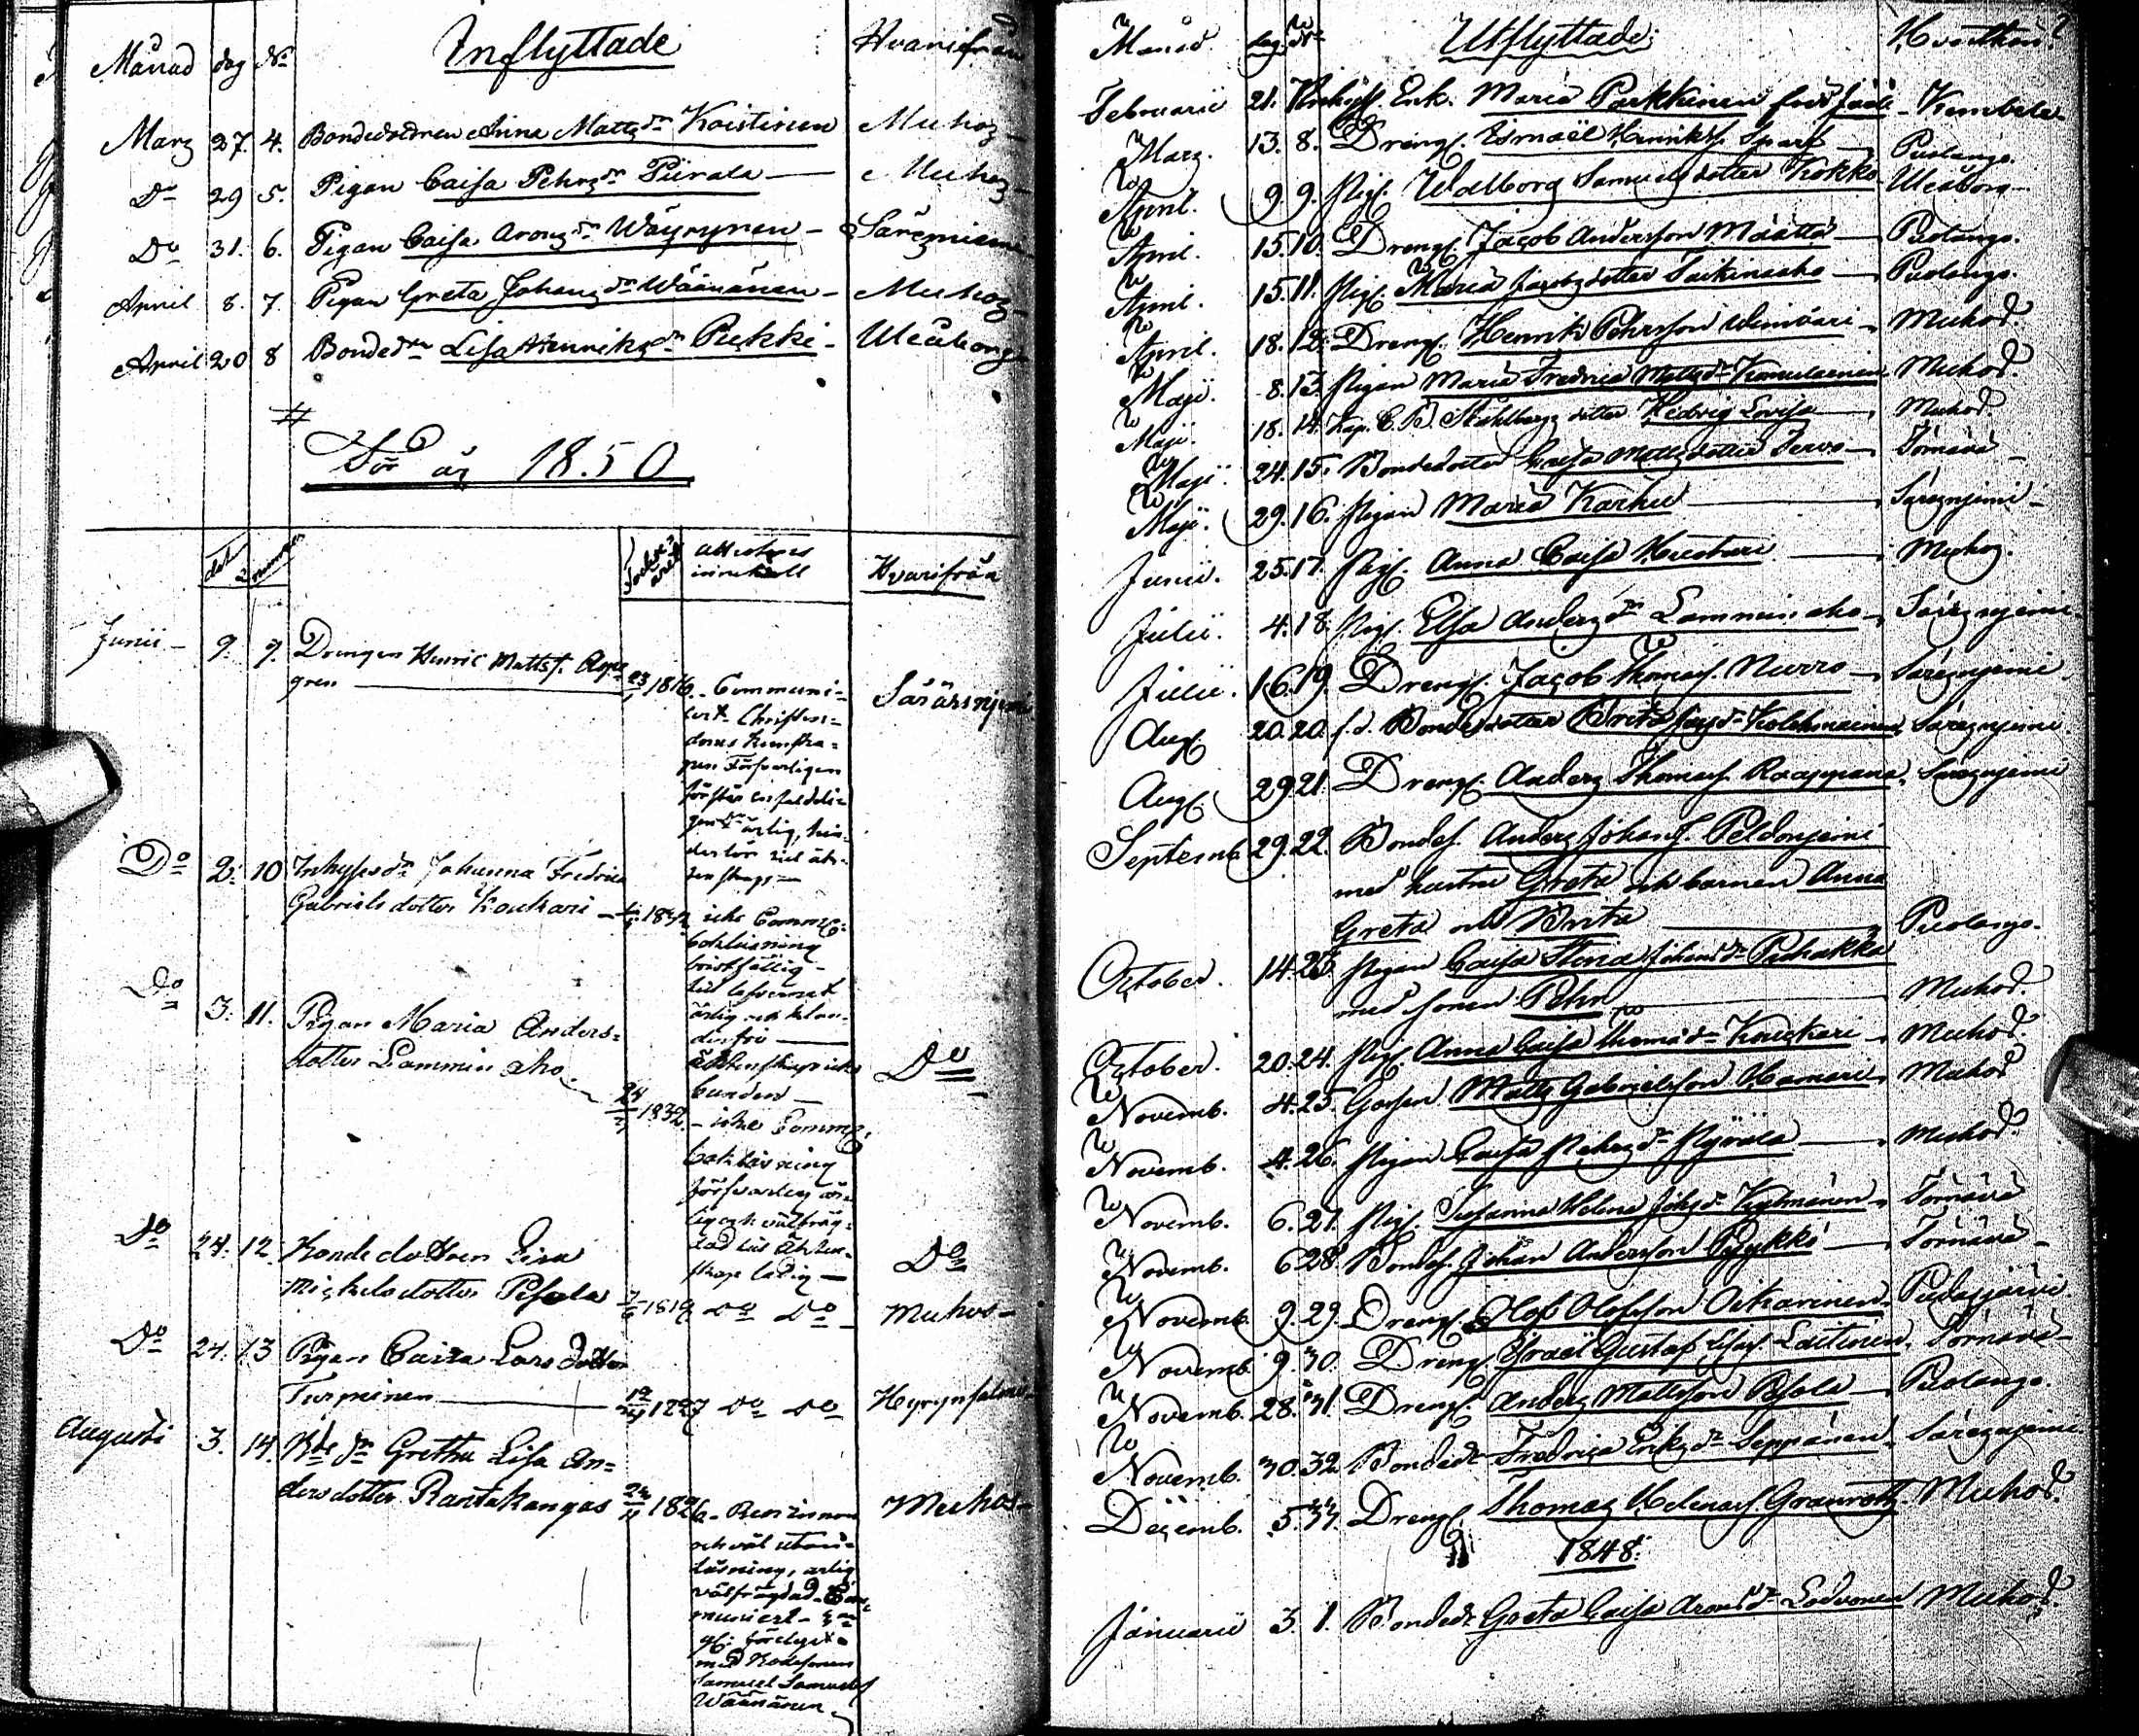 Månad dag No Inflyttade Hvarifrån
Mars 27. 4. Bondedottren Anna Mattsdr Koistinen Muhos
Do 29 5. Pigan Caisa Pehrsdr Piirala — Muhos
Do 31. 6. Pigan Caisa Aronsdr Wäyrynen — Säresniemi
April 8. 7. Pigan Greta Johansdr Wäänänen — Muhos
April 20 8 Bondedr Lisa Henriksdr Pukki — Uleåborg
#
För år 1850
dat nummer Födelse året attestens innehåll Hvarifrån
Junii — 9. 9. Drengen Henric Mattss. Asp-
gren 23/1 1816. Communi- Säräisnjemi
cert. Christen-
doms kunska-
pen Försvarligen
förstår enfaldeli-
gen ärlig, hin-
derlös till äk-
tenskap —
Do 2. 10 Inhyses dr Johanna Fredrica
Gabriels dotter Koukari — 1832 icke Comm.
bokläsning
bristfällig —
till lefvernet
ärlig och klan-
derfri —
Do 3. 11. Pigan Maria Anders-
dotter Lamminaho äktenskap icke Do
bunden —
24/7 1832. — icke Comm.
bokläsning
försvarlig är-
lig och välfräg-
dad till äkten-
skap ledig —
Do 24. 12. Bonde dottren Lisa Do
Michelsdotter Pesola 7/6 1819 Do Do Muhos —
Do 24. 13 Pigan Caisa Larsdotter
Turpeinen 1827 Do Do Hyrynsalmi
Augusti 3. 14. Bde dr Gretha Lisa An-
dersdotter Rantakangas 1826 — Ren innan Muhos —
och väl utan-
läsning, ärlig
välfrägdad Com-
municert —
förlyst
med Bondesonen
Samuel Samuels
Wäänänen
Månad dag No Utflyttade: Hvarthän?
Februarii 21. Enk. Maria Parkkinen född Jääli — Kembele
Mars. 13. 8. Drengs. Esmaël Henrikss. Sparf — Puolango.
April. 9 9. Pig. Walborg Samuelsdotter Kokko Uleåborg
April. 15. 10. Drengs. Jacob Andersson Määttä — Puolango.
April. 15. 11. Pig. Maria Jacobsdotter — Puolango.
April. 18. 12. Drengs. Henrik Pehrsson — Muhos.
Maji. 8. 13. Pigan Maria Fredrica Mattsdr Komulainen Muhos.
Maji. 18. 14. Kap. C. B. Ståhlbergs dotter Hedvig Lovisa — Muhos.
Maji. 24. 15. Bondedotter Caisa Mattsdotter — Törnävä —
Maji. 29. 16. Pigan Maria Karhu — Säresnjemi —
Junii. 25. 17. Pig. Anna Caisa — Muhos.
Julii. 4. 18. Pig. Elsa Andersdr Lamminaho — Säresnjemi.
Julii. 16. 19. Drengs. Jacob Thomass. Nurro — Säresnjemi.
Aug. 20. 20. f.d. Bondedotter Brita Kolehmainen, Säresnjemi.
Aug. 29. 21. Drengs. Anders Thomass. Raappana, Säresnjemi
Septemb. 29. 22. Bondes. Anders Johans. Peldonjemi
med hustru Greta och barnen Anna
Greta och Brita — Puolango.
October. 14. 23. Pigan Caisa Stina Johansdr Pehakka
med sonen Pehr — Muhos.
October. 20. 24. Pig. Anna Caisa Thomasdr Koukkari — Muhos.
Novemb. 4. 25. Gossen Matts Gabrielsson Hamari — Muhos
Novemb. 4. 26. Pigan Caisa Pehrsdr Pyrälä — Muhos.
Novemb. 6. 27. Pig. Susanna Helena Johsdr — Törnävä
Novemb. 6 28. Bondes. Johan Andersson Pyykkö — Törnävä —
Novemb. 9. 29. Drengs. Olof Olofsson Oikarinen. Pudasjärvi
Novemb. 9. 30. Drengs. Israël Gustaf Laitinen. Törnävä —
Novemb. 28. 31. Drengs. Anders Mattsson Pesola — Puolango.
Novemb. 30. 32. Bondedr Fredrica Eriksdr Seppänen. Säresnjemi.
Decemb. 5. 33. Drengs. Thomas Helenass. Granroth. Muhos.
1848:
Januarii 3. 1. Bondedr Greta Caisa Aronsdr Lodvonen Muhos.